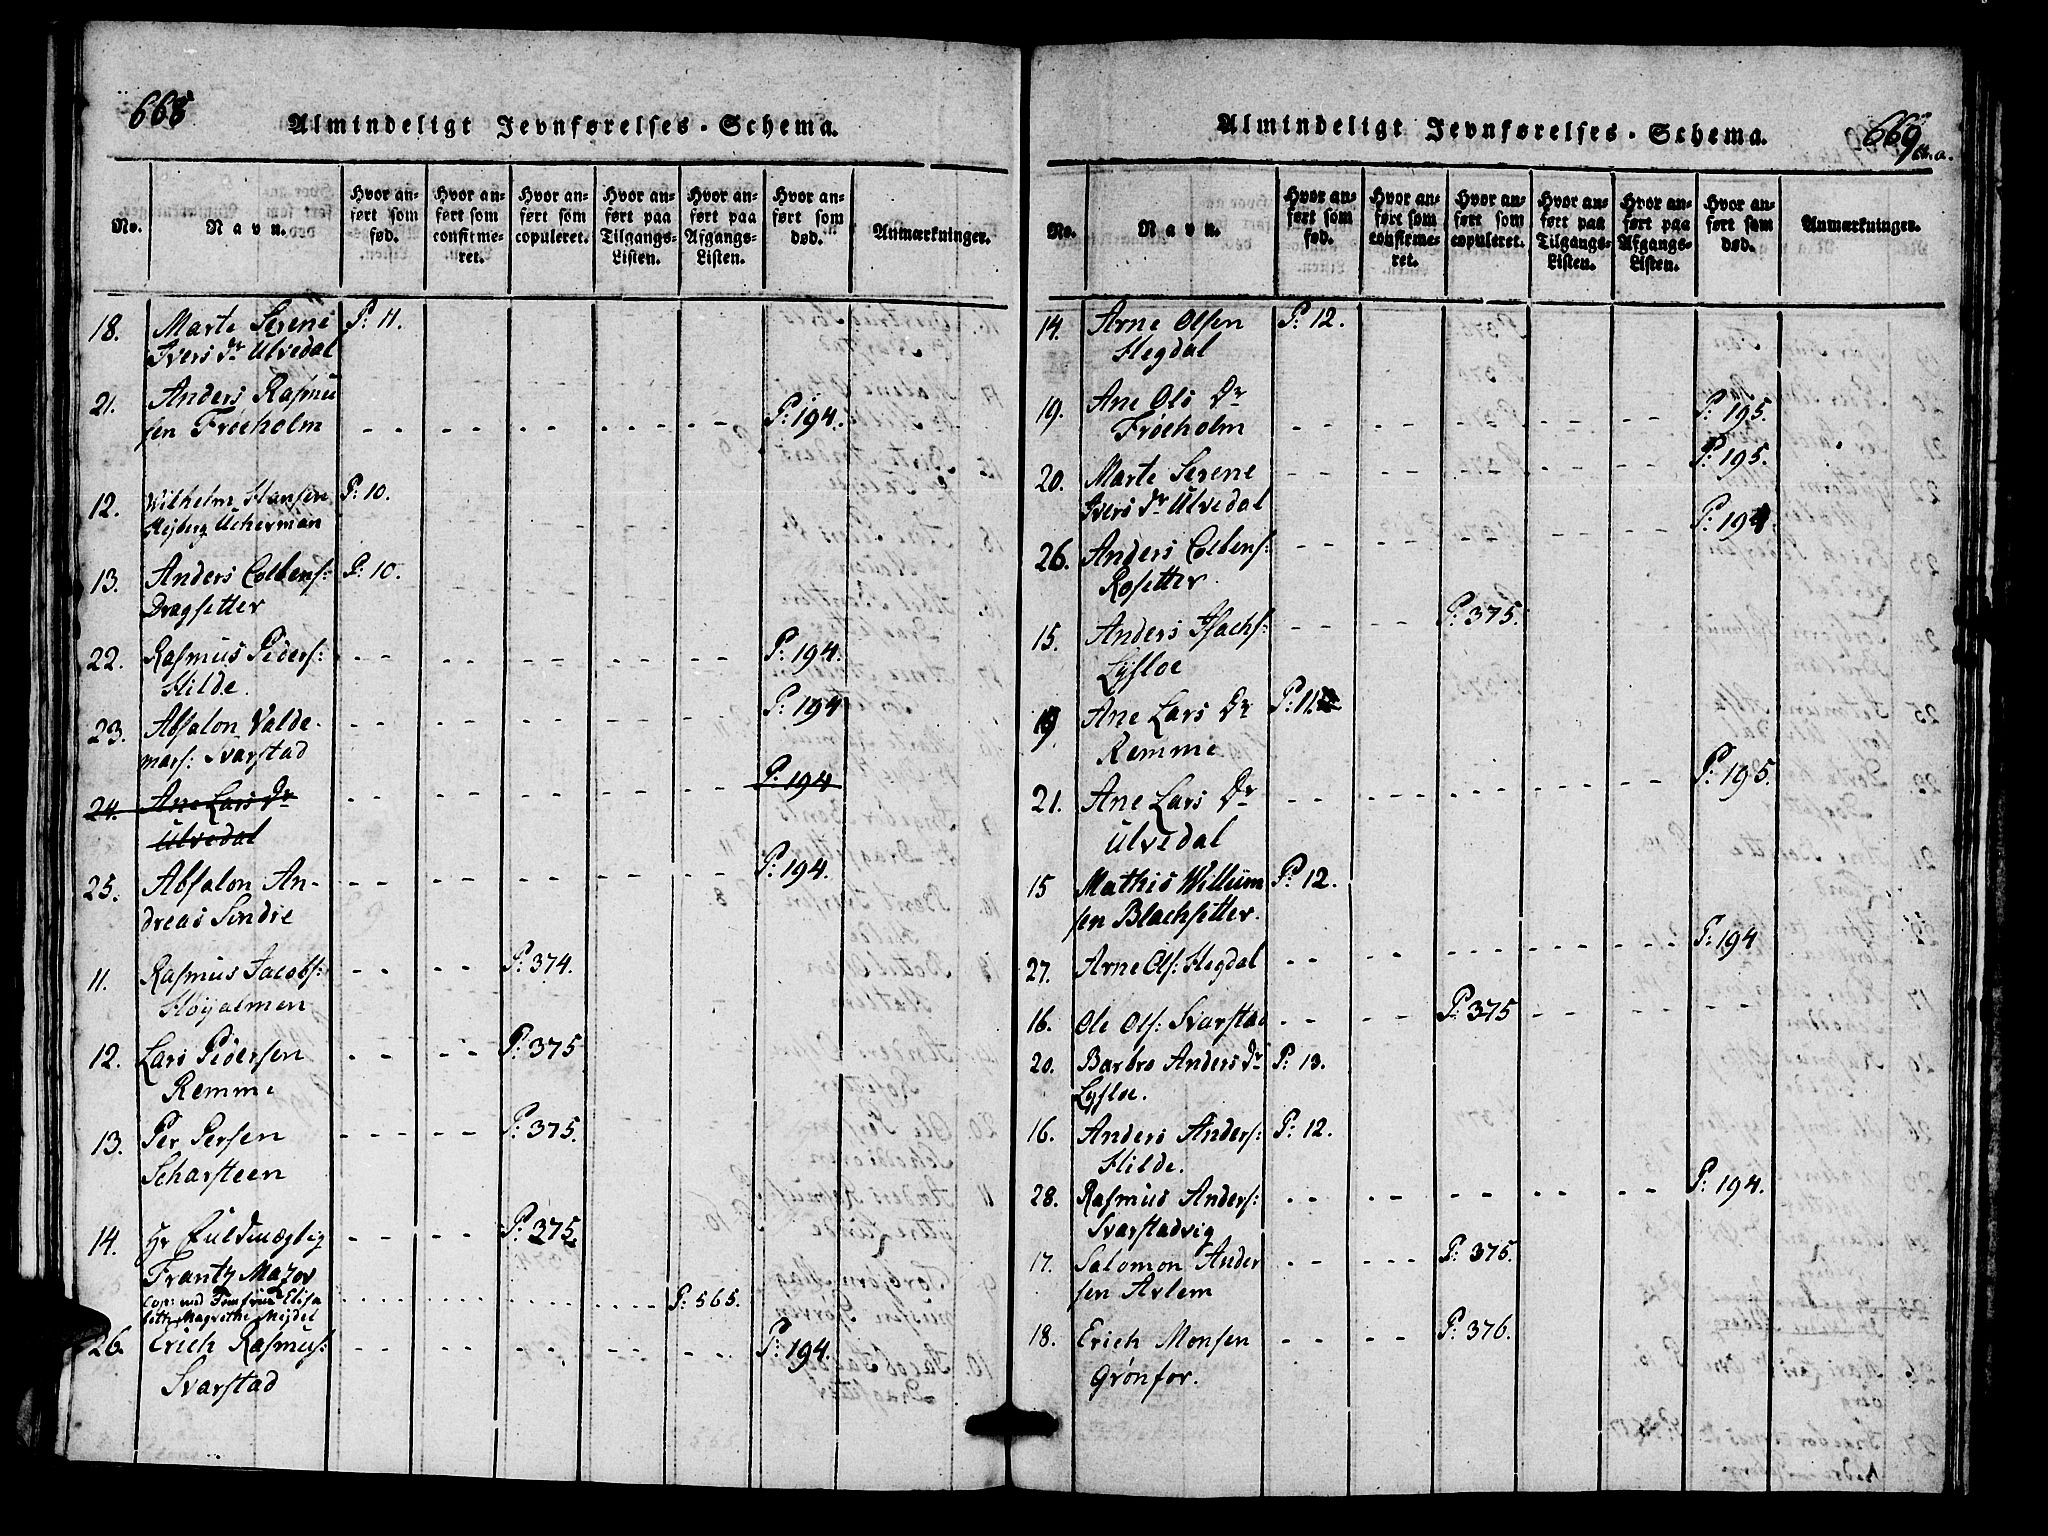 668
Almindeligt Jevnførelses-Schema.
No.
Navn.
Hvor anført som fød.
Hvor anført som confirmeret.
Hvor anført som copuleret.
Hvor anført paa Tilgangs-Listen.
Hvor anført paa Afgangs-Listen.
Hvor anført som død.
Anmærkninger.
18. Marte Serene P: 11.
Ivers Dr Ulvedal
21. Anders Rasmu
sen Frøeholm P: 194.
12. Wilhelm Hansen P: 10.
Uckerman
13. Anders Colbens: P: 10.
Dragsetter
22. Rasmus Peders: P: 194.
Hilde.
23. Absalon Valde- P: 194
mars: Svarstad
24. Ane Lars Dr P: 194
Ulvedal
25. Absalon An- P: 194.
dreas Sindre
11. Rasmus Jacobs: P: 374.
Høyalmen
12. Lars Pedersen P: 375
Remme
13. Per Persen P: 375.
Scharsteen
14. Hr Fuldmægtig P: 375.
Frantz Mazov
Cop: med Jomfrue Elisa P: 565.
beth Magrethe Mejdel
26. Erich Rasmus: P: 194.
Svarstad
669
Almindeligt Jevnførelses-Schema.
No.
Navn.
Hvor anført som fød.
Hvor anført som confirmeret.
Hvor anført som copuleret.
Hvor anført paa Tilgangs-Listen.
Hvor anført paa Afgangs-Listen.
Hvor anført som død.
Anmærkninger.
14. Arne Olsen P: 12.
Hegdal
19. Ane Ols Dr P: 195.
Frøeholm
20. Marte Serene P: 195.
Ivers Dr Ulvedal
26. Anders Colbens: P: 194
Rosetter
15. Anders Isachs: P: 375.
Lysloe
19. Ane Lars Dr P: 11.
Remme
21. Ane Lars Dr P: 195.
Ulvedal
15 Mathis Willum P: 12.
sen Blachsetter.
27. Arne Ols: Hegdal P: 194
16. Ole Ols: Svarstad P: 375
20. Barbro Anders Dr P: 13.
Lysloe.
16. Anders Anders: P: 12.
Hilde.
28. Rasmus Anders: P: 194.
Svarstadvig
17. Salomon Ander P: 375.
sen Avlem
18. Erich Monsen P: 376.
Grønfor.